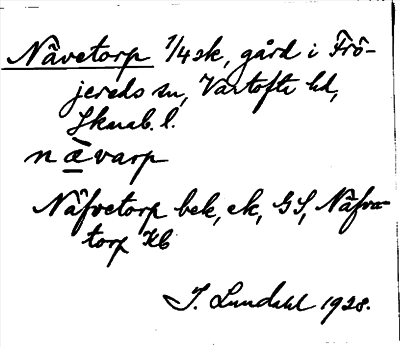 Nävetorp 1/4 sk, gård i Frö-
jereds sn, Vartofta hd,
Skarab. l.
nævarp
Näfvetorp bek, ek, GS, Näfva-
torp Kb
I. Lundahl 1928.